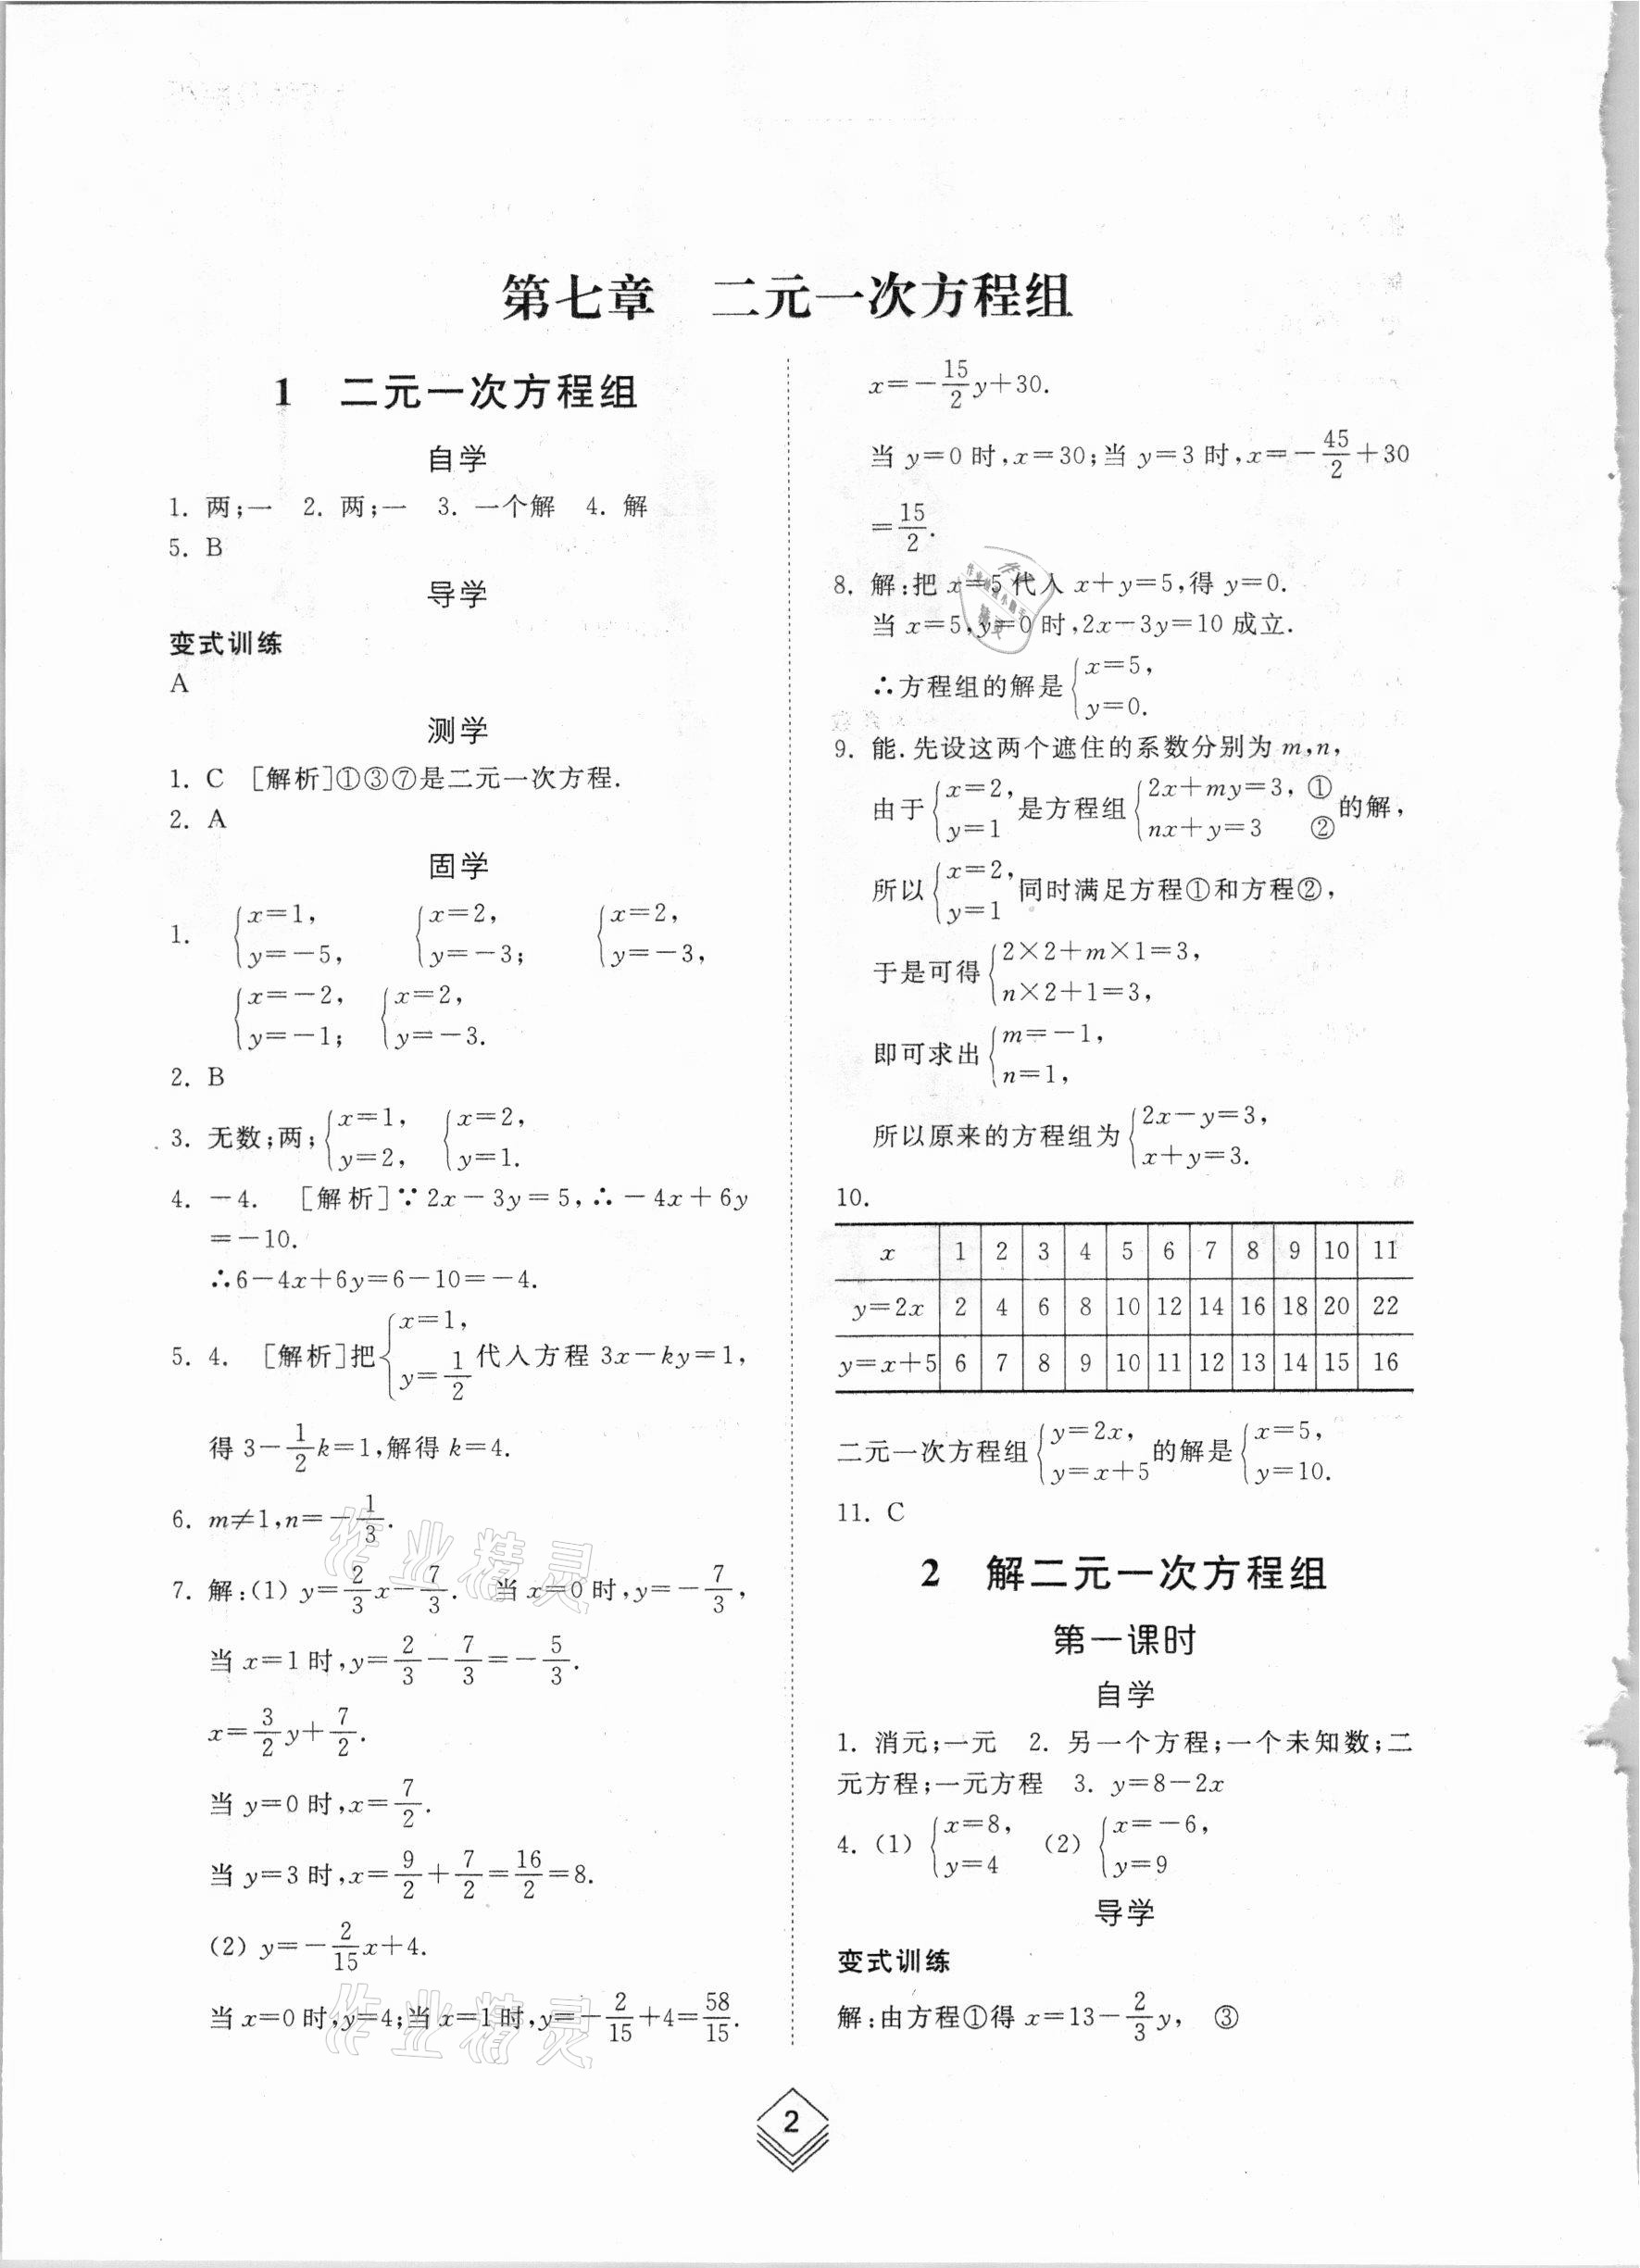 第七章 二元一次方程组
1 二元一次方程组
自学
1. 两;一 2. 两;一 3. 一个解 4. 解
5. B
导学
变式训练
A
测学
1. C [解析]①③⑦是二元一次方程.
2. A
固学
1. {x=1, y=-5, {x=2, y=-3; {x=2, y=-3,
{x=-2, y=-1; {x=2, y=-3.
2. B
3. 无数;两;{x=1, y=2, {x=2, y=1.
4. -4. [解析]∵2x-3y=5,∴-4x+6y
=-10.
∴6-4x+6y=6-10=-4.
5. 4. [解析]把{x=1, y=1/2 代入方程 3x-ky=1,
得 3-1/2 k=1,解得 k=4.
6. m≠1,n=-1/3.
7. 解:(1) y=2/3 x-7/3. 当 x=0 时,y=-7/3,
当 x=1 时,y=2/3-7/3=-5/3.
x=3/2 y+7/2.
当 y=0 时,x=7/2.
当 y=3 时,x=9/2+7/2=16/2=8.
(2) y=-2/15 x+4.
当 x=0 时,y=4;当 x=1 时,y=-2/15+4=58/15.
x=-15/2 y+30.
当 y=0 时,x=30;当 y=3 时,x=-45/2+30
=15/2.
8. 解:把 x=5 代入 x+y=5,得 y=0.
当 x=5,y=0 时,2x-3y=10 成立.
∴方程组的解是{x=5, y=0.
9. 能.先设这两个遮住的系数分别为 m,n,
由于{x=2, y=1 是方程组{2x+my=3, ① nx+y=3 ② 的解,
所以{x=2, y=1 同时满足方程①和方程②,
于是可得{2×2+m×1=3, n×2+1=3,
即可求出{m=-1, n=1,
所以原来的方程组为{2x-y=3, x+y=3.
10.
x 1 2 3 4 5 6 7 8 9 10 11
y=2x 2 4 6 8 10 12 14 16 18 20 22
y=x+5 6 7 8 9 10 11 12 13 14 15 16
二元一次方程组{y=2x, y=x+5 的解是{x=5, y=10.
11. C
2 解二元一次方程组
第一课时
自学
1. 消元;一元 2. 另一个方程;一个未知数;二
元方程;一元方程 3. y=8-2x
4. (1) {x=8, y=4 (2) {x=-6, y=9
导学
变式训练
解:由方程①得 x=13-2/3 y, ③
作业精灵
作业精灵
2